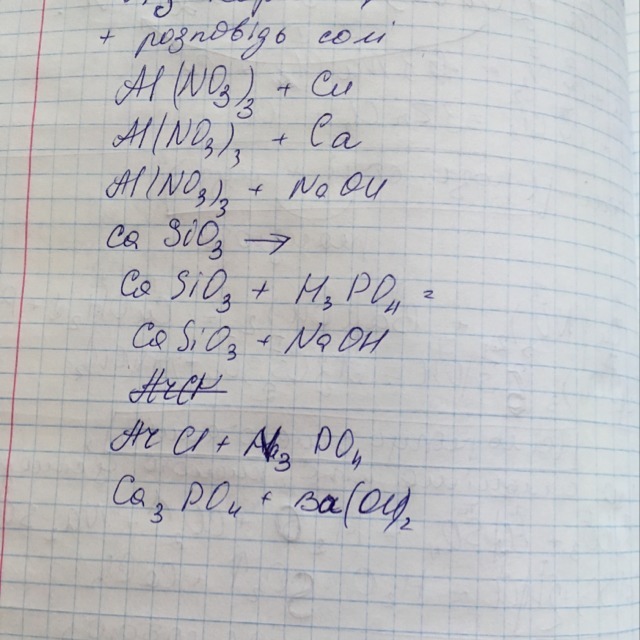 + розповідь солі
Al(NO₃)₃ + Cu
Al(NO₃)₃ + Ca
Al(NO₃)₃ + NaOH
Ca SiO₃ →
Ca SiO₃ + H₃ PO₄ =
Ca SiO₃ + NaOH
ArCl
Ar Cl + Na₃ PO₄
Ca₃ PO₄ + Ba(OH)₂